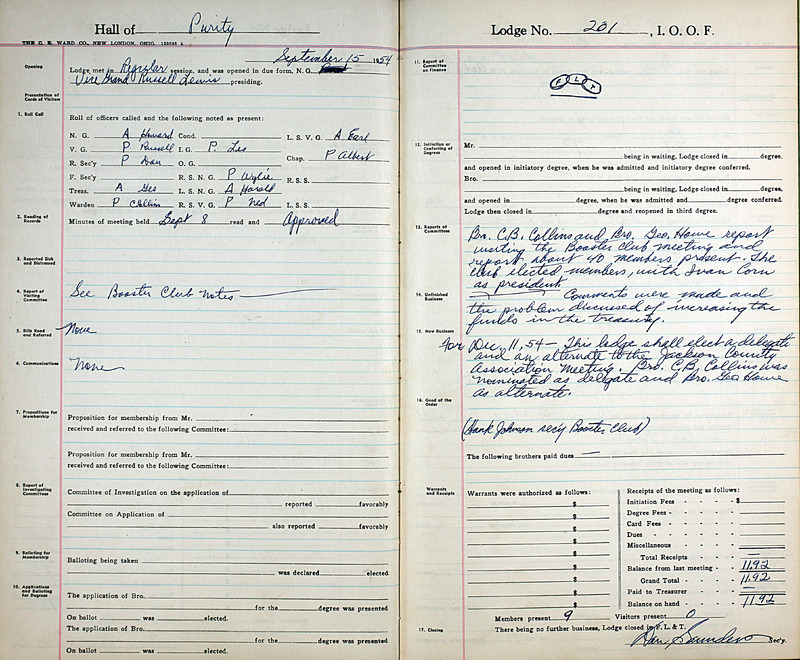 Hall of Purity
THE C. E. WARD CO., NEW LONDON, OHIO.
September 15 1954
Opening
Lodge met in Regular session, and was opened in due form, N. G.
Vice Grand Russell Lewis presiding.
Presentation of Cards of Visitors
1. Roll Call
Roll of officers called and the following noted as present:
N. G. A Howard Cond. L. S. V. G. A Earl
V. G. P Russell I. G. P. Les
Chap. P Albert
R. Sec'y P Dan O. G.
F. Sec'y R. S. N. G. P Wylie R. S. S.
Treas. A Geo L. S. N. G. A Harold
Warden P Collins R. S. V. G. P Ned L. S. S.
2. Reading of Records
Minutes of meeting held Sept 8 read and Approved
3. Reported Sick and Distressed
4. Report of Visiting Committee
See Booster Club Notes
5. Bills Read and Referred
None
6. Communications
None
7. Propositions for Membership
Proposition for membership from Mr.
received and referred to the following Committee:
Proposition for membership from Mr.
received and referred to the following Committee:
8. Report of Investigating Committees
Committee of Investigation on the application of
reported favorably
Committee on Application of
also reported favorably
9. Balloting for Membership
Balloting being taken
was declared elected
10. Applications and Balloting for Degrees
The application of Bro.
for the degree was presented
On ballot was elected.
The application of Bro.
for the degree was presented
On ballot was elected.
Lodge No. 201, I. O. O. F.
11. Report of Committee on Finance
F L T
12. Initiation or Conferring of Degrees
Mr.
being in waiting, Lodge closed in degree,
and opened in initiatory degree, when he was admitted and initiatory degree conferred.
Bro.
being in waiting, Lodge closed in degree,
and opened in degree, when he was admitted and degree conferred.
Lodge then closed in degree and reopened in third degree.
13. Reports of Committees
Bro. C.B. Collins and Bro. Geo. Howe report
visiting the Booster Club meeting and
report about 40 members present. The
club elected members, with Ivan Corn
as president
14. Unfinished Business
Comments were made and
the problem discussed of increasing the
funds in the treasury.
15. New Business
for Dec. 11, 54 — This lodge shall elect a delegate
and an alternate to the Jackson County
Association meeting. Bro. C.B. Collins was
nominated as delegate and Bro. Geo Howe
as alternate.
16. Good of the Order
(Hank Johnson sec'y Booster Club)
The following brothers paid dues —
Warrants and Receipts
Warrants were authorized as follows:
$
$
$
$
$
$
$
$
$
Receipts of the meeting as follows:
Initiation Fees $
Degree Fees
Card Fees
Dues
Miscellaneous
Total Receipts —
Balance from last meeting 1192
Grand Total 1192
Paid to Treasurer —
Balance on hand 1192
Members present 9 Visitors present 0
17. Closing
There being no further business, Lodge closed in F. L. & T.
Dan Saunders Sec'y.